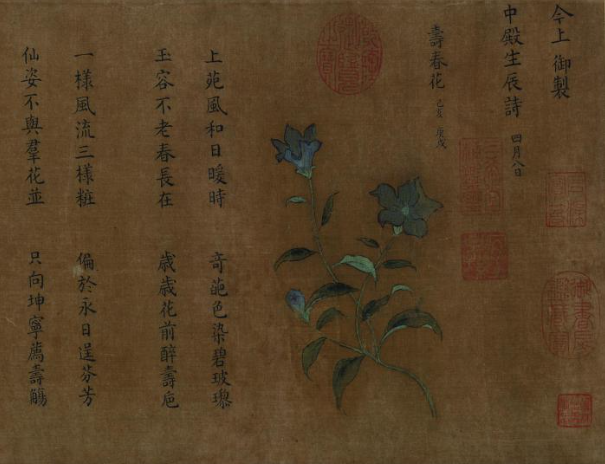 今上 御製
中殿生辰詩 四月八日
壽春花 己亥 庚戌
上苑風和日暖時 奇葩色染碧玻瓈
玉容不老春長在 歲歲花前醉壽巵
一樣風流三樣粧 偏於永日逞芬芳
仙姿不與羣花並 只向坤寧薦壽觴